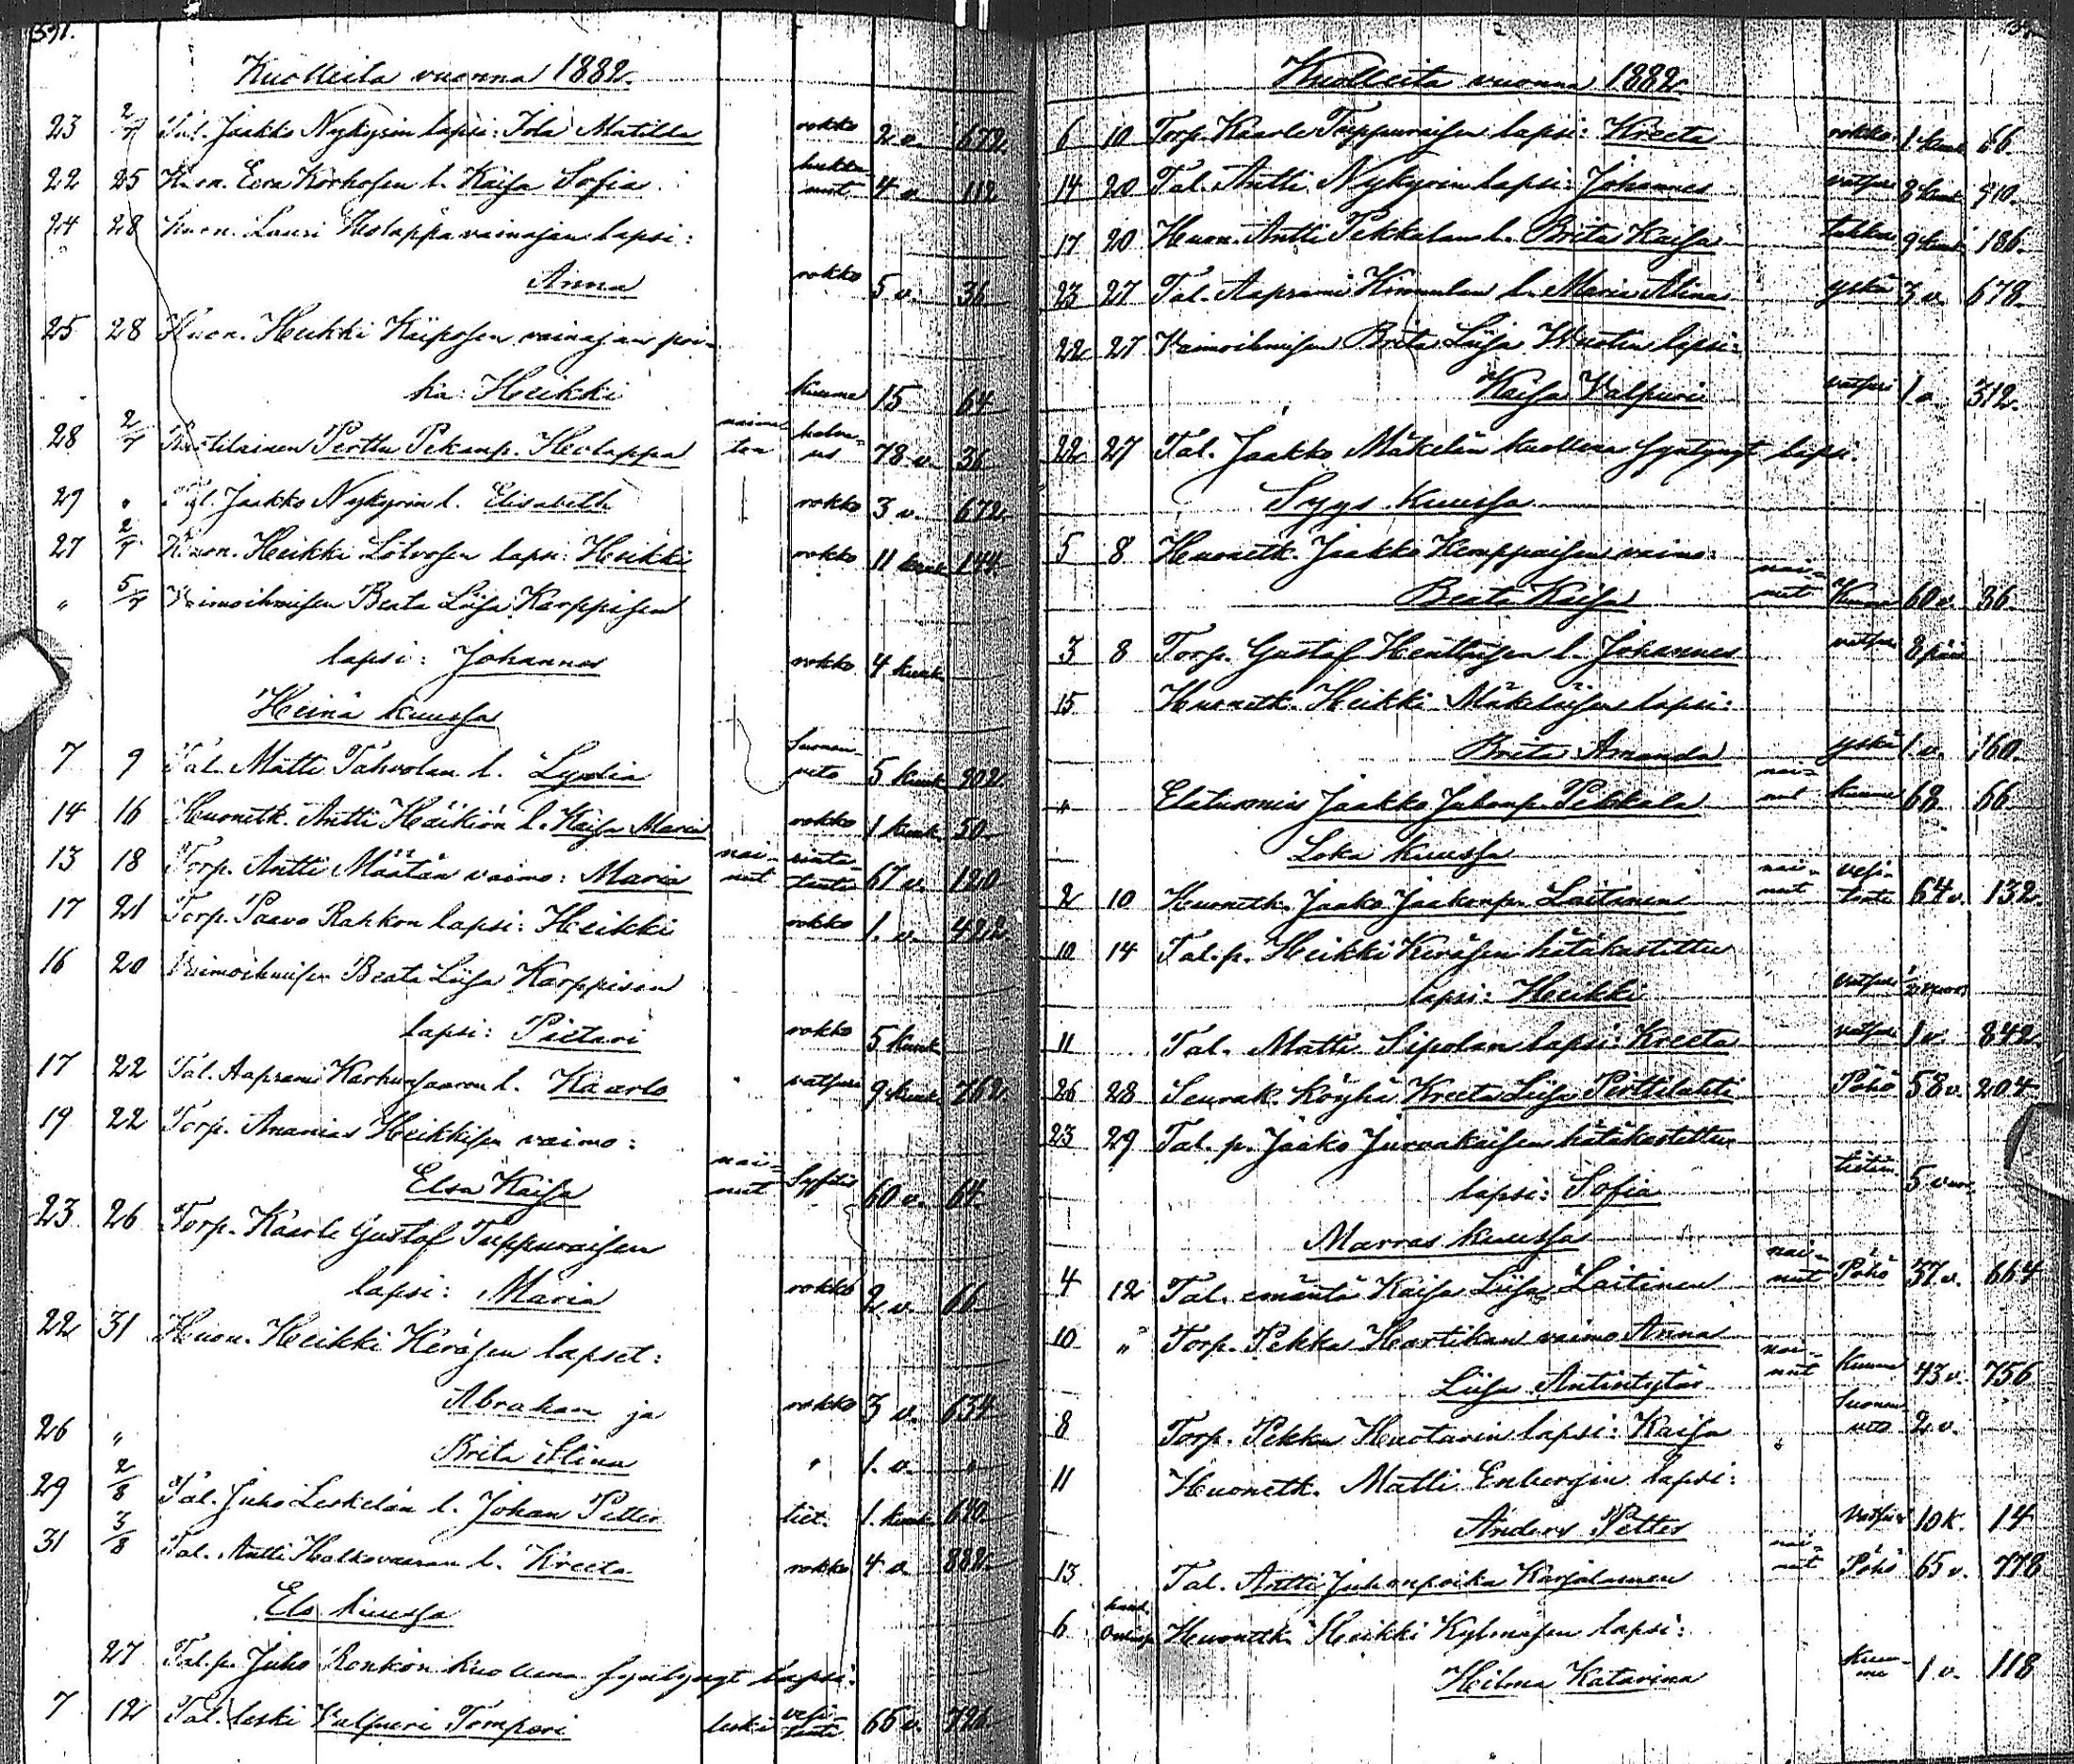 391.
Kuolleita vuonna 1882.
23 2/7 Tal. Jaakko Nykyrin lapsi: Ida Matilda rokko 2 v. 672
22 25 Huon. Eera Korhosen l. Kaisa Sofia hukkunut 4 v. 112
24 28 Huon. Lauri Holappa vainajan lapsi:
Anna rokko 5 v. 36
25 28 Huon. Heikki Kiiposen vainajan poi-
ka: Heikki kuume 15 64
28 2/7 Ruotilainen Perttu Pekanp. Holappa naimaton 78 v. 36
29 " Tal. Jaakko Nykyrin l. Elisabeth rokko 3 v. 672
27 2/7 Huon. Heikki Lotvosen lapsi: Heikki rokko 11 kuuk. 144
" 5/7 Vaimoihmisen Beata Liisa Karppisen
lapsi: Johannes rokko 4 kuuk.
Heinä kuussa
7 9 Tal. Matti Tahvolan l. Lydia Suonenveto 5 kuuk. 902
14 16 Huonetk. Antti Häikiön l. Kaisa Maria rokko 1 kuuk. 50
13 18 Torp. Antti Määtän vaimo: Maria nainut rintatauti 67 v. 120
17 21 Torp. Paavo Rahkon lapsi: Heikki rokko 1. v. 422
16 20 Vaimoihmisen Beata Liisa Karppisen
lapsi: Pietari rokko 5 kuuk.
17 22 Tal. Aaprami Karhunsaaren l. Kaarlo vatsuri 9 kuuk. 762
19 22 Torp. Ananias Heikkisen vaimo:
Elsa Kaisa nainut 60 v. 64.
23 26 Torp. Kaarle Gustaf Tuppuraisen
lapsi: Maria rokko 2 v. 66
22 31 Huon. Heikki Keräsen lapset:
Abraham ja rokko 3 v. 634
26 " Brita Stina " 1. v. "
29 2/8 Tal. Juho Leskelän l. Johan Petter tiet. 1. kuuk. 690.
31 3/8 Tal. Antti Halkovaaran l. Kreeta rokko 4 v. 888.
Elo kuussa
27 Tal. p. Juho Ronkon kuolleena syntynyt lapsi:
7 12 Tal. leski Valpuri Tomperi leski vesitauti 65 v. 726
Kuolleita vuonna 1882
6 10 Torp. Kaarle Tuppuraisen lapsi: Kreeta rokko 1 kuuk. 66.
14 20 Tal. Antti Nykyrin lapsi: Johannes vatsuri 8 kuuk. 910.
17 20 Huon. Antti Pekkalan l. Brita Kaisa 9 kuuk. 186.
23 27 Tal. Aaprami Kimmelan l. Maria Alina yskä 3 v. 678.
22 27 Vaimoihmisen Brita Liisa Huotin lapsi:
Kaisa Valpuri vatsuri 1 v. 312.
22 27 Tal. Jaakko Mäkelän kuolleena syntynyt lapsi.
Syys kuussa
5 8 Huonetk. Jaakko Kemppaisen vaimo:
Beata Kaisa nainut 60 v. 36
3 8 Torp. Gustaf Henttusen l. Johannes vatsuri 8 päiv.
15 Huonetk. Heikki Mäkeläisen lapsi:
Brita Amanda yskä 1 v. 160.
" Elatusmies Jaakko Juhanp. Pekkala nainut kuume 68 66.
Loka kuussa
2 10 Huonetk. Jaako Jaakonp. Laitinen nainut vesitauti 64 v. 132.
10 14 Tal. p. Heikki Keräsen hätäkastettu
lapsi: Heikki vatsuri
11 Tal. Matti Sipolan lapsi: Kreeta vatsuri 1 v. 842.
26 28 Seurak. köyhä Kreeta Liisa Perttilahti Pöhö 58 v. 204
23 29 Tal. p. Jaako Jurvakaisen hätäkastettu
lapsi: Sofia 5 vuor.
Marras kuussa
4 12 Tal. emäntä Kaisa Liisa Laitinen nainut Pöhö 37 v. 664
10 " Torp. Pekka Hartikan vaimo Anna
Liisa Antintytär nainut Kuume 43 v. 756
8 Torp. Pekka Huotarin lapsi: Kaisa Suonenveto 2 v.
11 Huonetk. Matti Enbergin lapsi:
Anders Petter Vatsuri 10 k. 14
13 Tal. Antti Juhonpoika Karjalainen nainut Pöhö 65 v. 778
6 Huonetk. Heikki Kylmäsen lapsi:
Hilma Katarina Kuume 1 v. 118